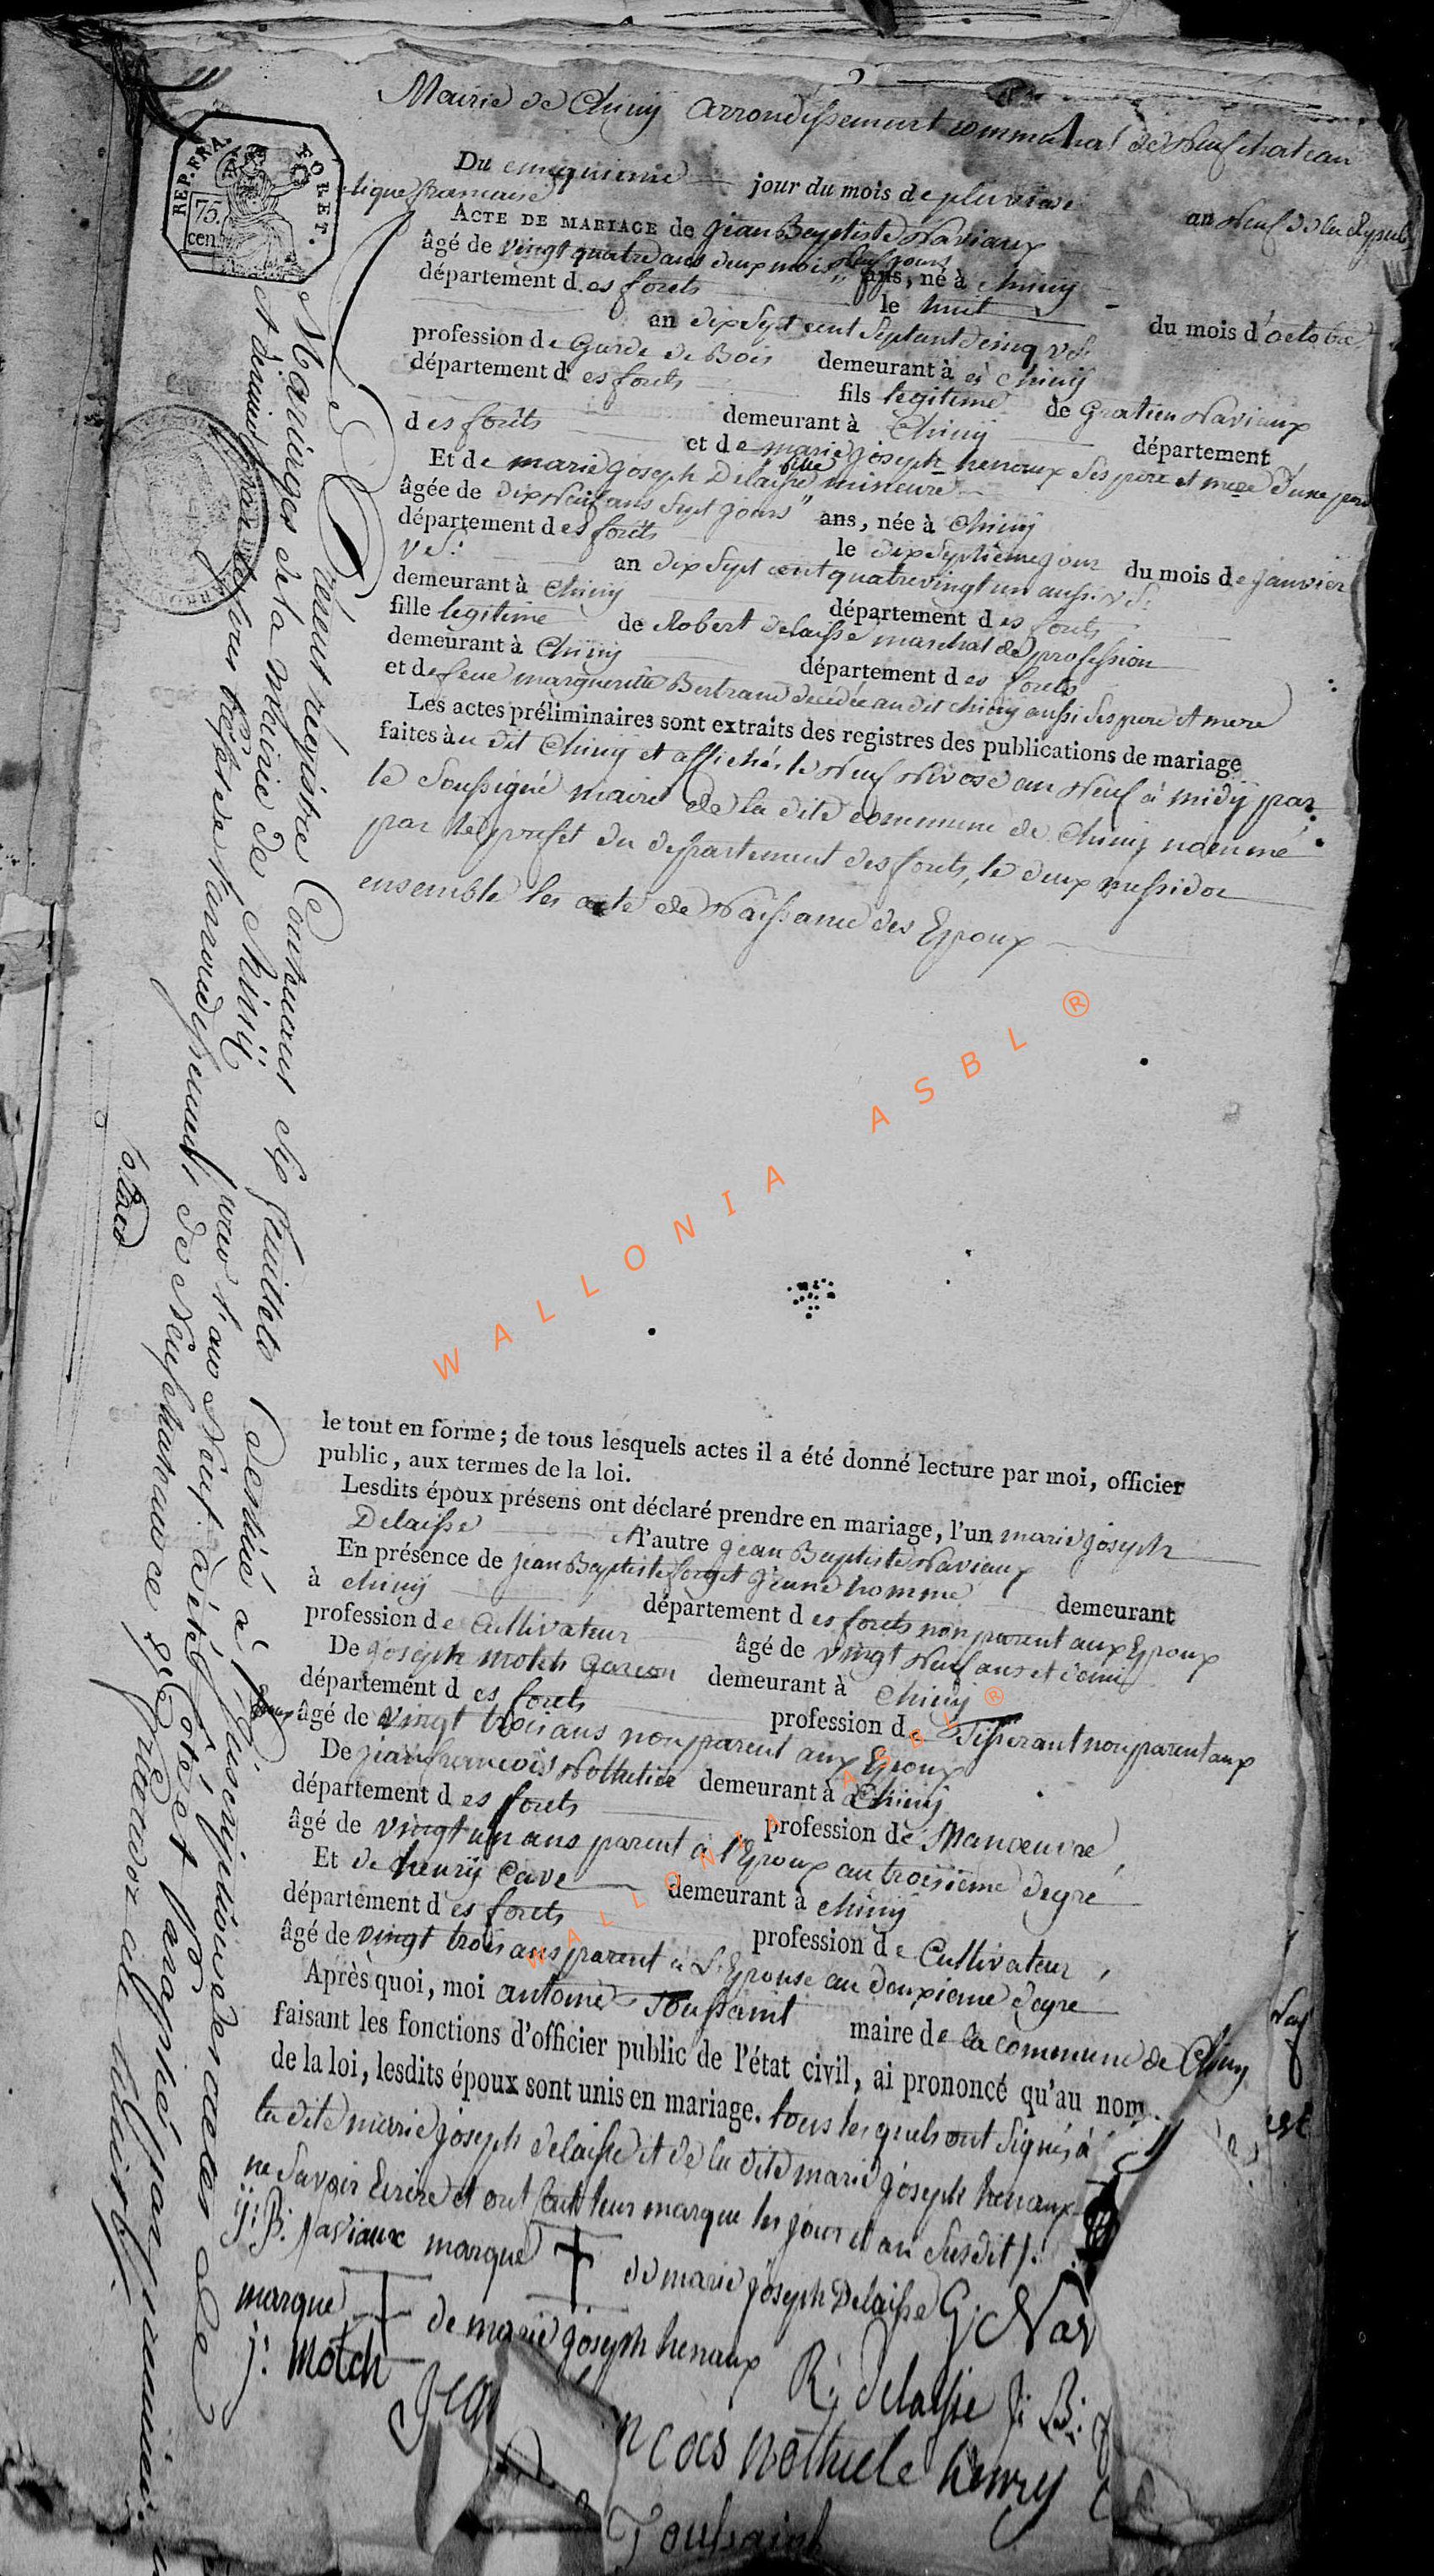 Mairie de Chinij arrondissement communal de Neufchateau
Du cinquieme jour du mois de pluviose an Neuf de la Republique francaise
ACTE DE MARIAGE de jean Baptiste Naviaux
âgé de vingt quatre ans deux mois neuf jours ans, né à Chinij
département d es forets le huit du mois d'octobre
an dix Sept cent Septante Cinq VS:
profession de Garde de Bois demeurant à Chinij
département d es forets fils legitime de Gratien Naviaux
demeurant à Chinij département
d es forêts et de marie joseph henaux Ses pere et mere d'une part
Et de marie joseph Delaisse fille mineure
âgée de dix Neuf ans Sept jours ans, née à Chinij
département d es forêts le dix Septieme jour du mois de janvier
VS: an dix Sept cent quatre vingt un aussi VS:
demeurant à Chinij département d es forets
fille legitime de Robert delaisse marchal de profession
demeurant à Chinij département d es forets
et de feue marguerite Bertrand decedée au dit chinij aussi Ses pere et mere
Les actes préliminaires sont extraits des registres des publications de mariage
faites à u dit Chinij et affiché, le Neuf Nivose an Neuf à midij par
le Soussigné maire de la dite commune de Chinij nommé
par le prefet du departement des forets, le deux messidor
ensemble les acte de Naissance des Epoux
le tout en forme; de tous lesquels actes il a été donné lecture par moi, officier
public, aux termes de la loi.
Lesdits époux présens ont déclaré prendre en mariage, l'un marie joseph
Delaisse et l'autre jean Baptiste Naviaux
En présence de jean Baptiste forget jeune homme demeurant
à chinij département d es forets non parent aux Epoux
profession de Cultivateur âgé de vingt Neuf ans et demi
De joseph motch garcon demeurant à Chinij
département d es forets profession de Tisserant non parent aux Epoux
âgé de vingt trois ans non parent aux Epoux
De jean francois Nothelier demeurant à Chinij
département d es forets profession de Manoeuvre,
âgé de vingt un ans parent à l'Epoux au troisieme degre
Et de henrij Cave demeurant à chinij
département d es forets profession de Cultivateur,
âgé de vingt trois ans parent à L'Epouse au deuxieme degre
Après quoi, moi antoine Toussaint maire de la commune de Chiny
faisant les fonctions d'officier public de l'état civil, ai prononcé qu'au nom
de la loi, lesdits époux sont unis en mariage. tous les quels ont Signés à
la dite marie joseph delaisse et de la dite marie joseph henaux
ne Savoir Ecrire et ont fait leur marque les jour et an Susdit/.
j: B: Naviaux marque de marie joseph Delaisse G: Nav
marque de marie joseph henaux R: delaisse J: B:
j: motch
jean
ncois nothuele henry
Toussaint
Le Présent registre Contenant Six feuillets Destiné à l'inscription des actes de
Mariages de la Mairie de Chinij pour l'an Neuf. à été Coté et Paraphé par premier
et dernier
de l'arrondissement de Neufchateau ce
REP. FRA.
FORET.
75.
cen.
WALLONIA ASBL ®
WALLONIA ASBL ®